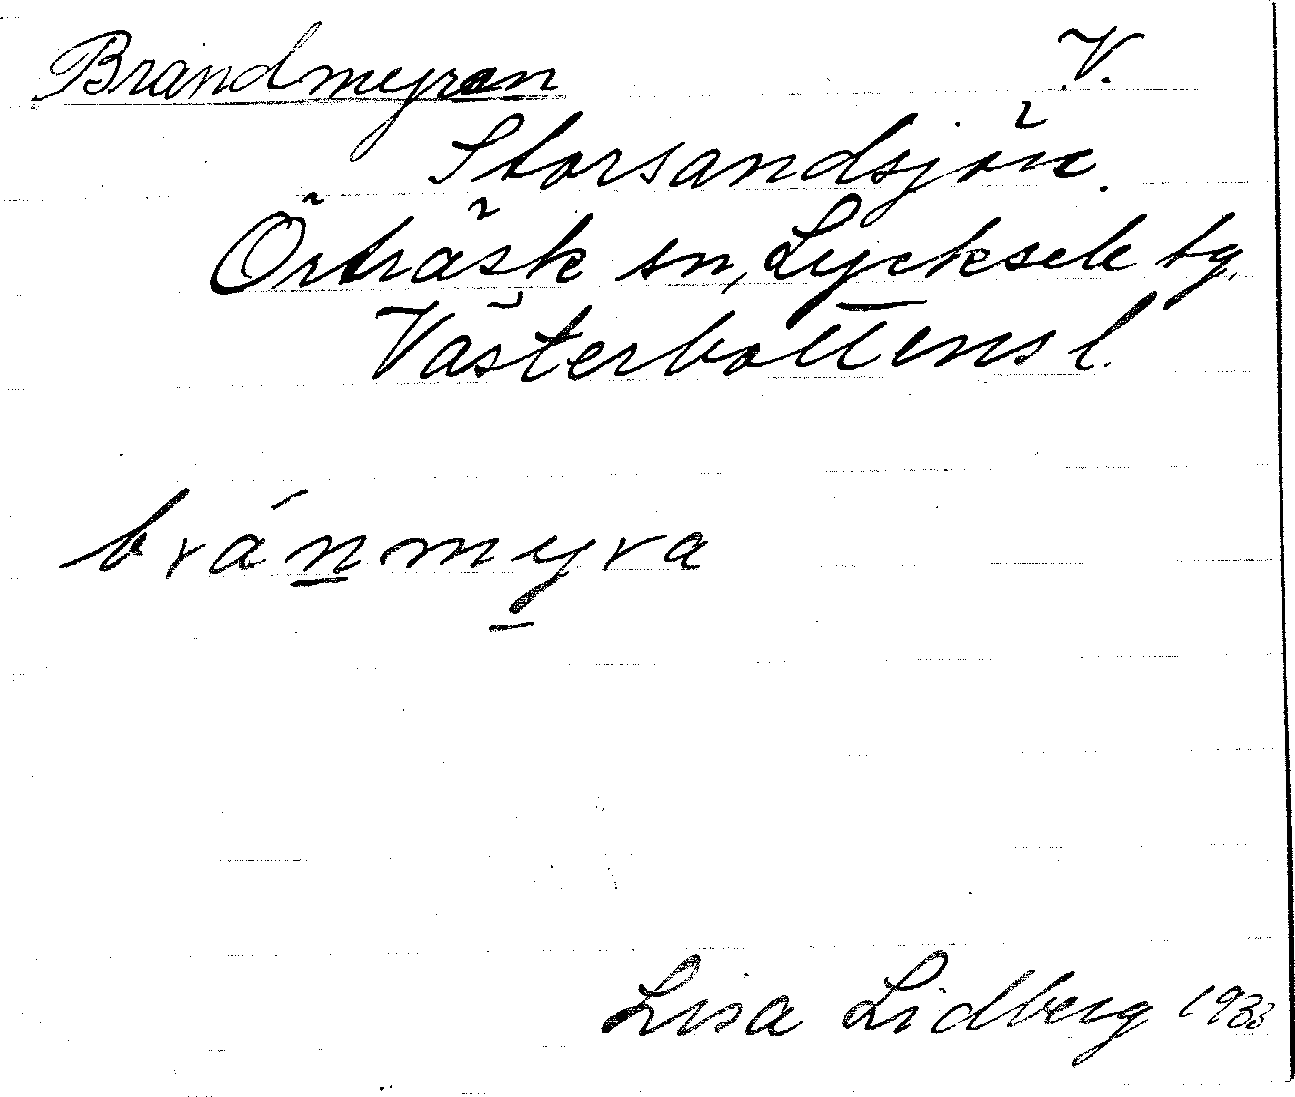 Brandmyran V.
Storsandsjön.
Örträsk sn, Lycksele tg.
Västerbottens l.
bránmyra
Lisa Lidberg 1933